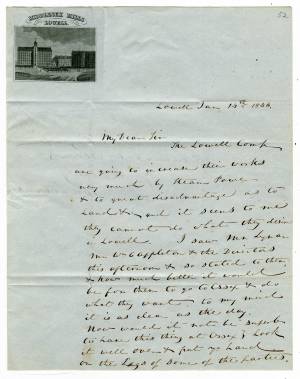 52
MIDDLESEX MILLS
LOWELL
Lowell Jan 14th 1846
My Dear Sir
The Lowell Comp
are going to increase their works
very much by Steam Power
& to great disadvantage as to
Land &c, and it seems to me
they cannot do what they desire
in Lowell. I saw Mr Lyman
Mr W Appleton & the Directors
this afternoon & so stated to them
& how much better it would
be for them to go to Essex & do
what they want to my mind
it is as clear as the day.
Now would it not be superb
to have this thing at Essex; Look
it well over & put your hand
on the legs of some of the parties.